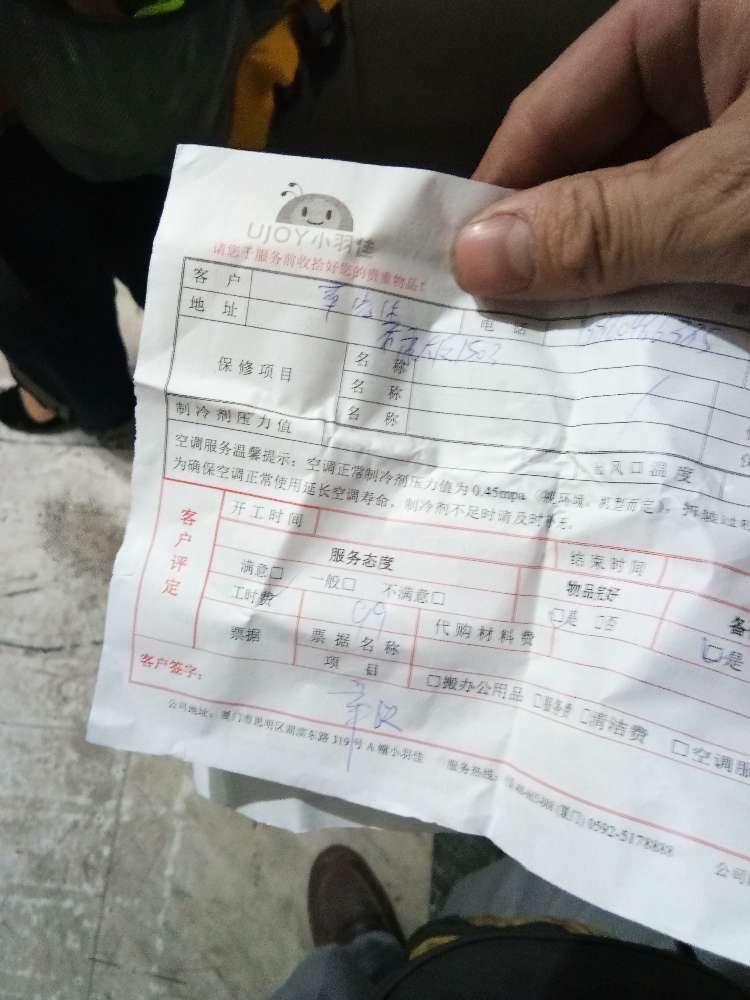 UJOY小羽佳
请您于服务前收拾好您的贵重物品!
客 户 电 话
地 址 1502
保修项目 名 称
名 称
名 称
制冷剂压力值 风口温度
空调服务温馨提示: 空调正常制冷剂压力值为 0.45mpa (视环境、机型而定),
为确保空调正常使用延长空调寿命, 制冷剂不足时请及时补充。
客户评定
开工时间 结束时间
服务态度 物品完好
满意□ 一般□ 不满意□ □是 □否 □是
工时费 代购材料费
票据 票据名称
项 目 □搬办公用品 □服务费 □清洁费 □空调服
客户签字:
公司地址: 厦门市思明区湖滨东路 319 号 A 幢小羽佳 服务热线: (厦门) 0592-5178888 公司